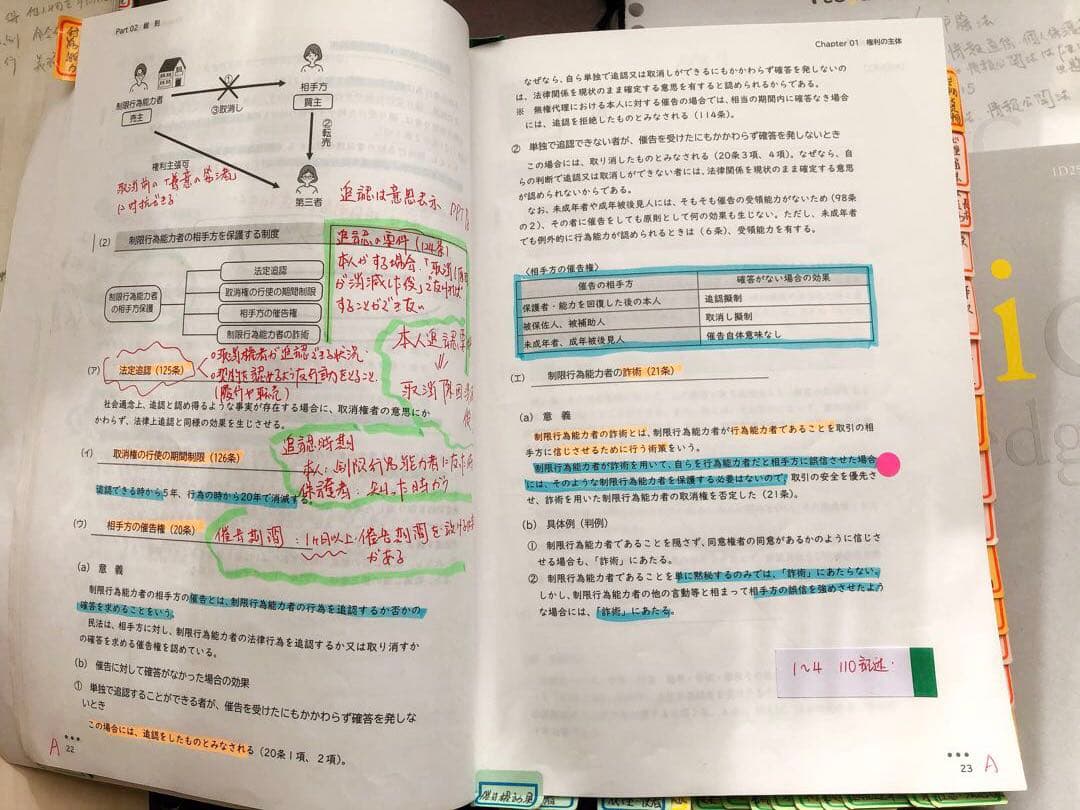 Part 02 総 則
制限行為能力者
売主
③取消し
相手方
買主
②転売
権利主張可
第三者
取消前の「善意の第三者」
に対抗できる
追認は意思表示
(2) 制限行為能力者の相手方を保護する制度
制限行為能力者
の相手方保護
法定追認
取消権の行使の期間制限
相手方の催告権
制限行為能力者の詐術
追認の要件(124条)
本人がする場合、「取消し原因
が消滅した後」でなければ
することができない
本人追認
⇓
取消原因
(ア) 法定追認(125条)
○取消権者が追認できる状況
○契約を認めるような行動をとること
(履行や転売)
社会通念上、追認と認め得るような事実が存在する場合に、取消権者の意思にか
かわらず、法律上追認と同様の効果を生じさせる。
追認時期
本人:制限行為能力者に
保護者:知った時から
(イ) 取消権の行使の期間制限(126条)
追認できる時から5年、行為の時から20年で消滅する。
(ウ) 相手方の催告権(20条)
催告期間:1ヶ月以上催告期間を設ける
がある
(a) 意 義
制限行為能力者の相手方の催告とは、制限行為能力者の行為を追認するか否かの
確答を求めることをいう。
民法は、相手方に対し、制限行為能力者の法律行為を追認するか又は取り消すか
の確答を求める催告権を認めている。
(b) 催告に対して確答がなかった場合の効果
① 単独で追認することができる者が、催告を受けたにもかかわらず確答を発しな
いとき
この場合には、追認をしたものとみなされる(20条1項、2項)。
A
22
Chapter 01 権利の主体
なぜなら、自ら単独で追認又は取消しができるにもかかわらず確答を発しないの
は、法律関係を現状のまま確定する意思を有すると認められるからである。
※ 無権代理における本人に対する催告の場合では、相当の期間内に確答なき場合
には、追認を拒絶したものとみなされる(114条)。
② 単独で追認できない者が、催告を受けたにもかかわらず確答を発しないとき
この場合には、取り消したものとみなされる(20条3項、4項)。なぜなら、自
らの判断で追認又は取消しができない者には、法律関係を現状のまま確定する意思
が認められないからである。
なお、未成年者や成年被後見人には、そもそも催告の受領能力がないため(98条
の2)、その者に催告をしても原則として何の効果も生じない。ただし、未成年者
でも例外的に行為能力が認められるときは(6条)、受領能力を有する。
〈相手方の催告権〉
催告の相手方 確答がない場合の効果
保護者・能力を回復した後の本人 追認擬制
被保佐人、被補助人 取消し擬制
未成年者、成年被後見人 催告自体意味なし
(エ) 制限行為能力者の詐術(21条)
(a) 意 義
制限行為能力者の詐術とは、制限行為能力者が行為能力者であることを取引の相
手方に信じさせるために行う術策をいう。
制限行為能力者が詐術を用いて、自らを行為能力者だと相手方に誤信させた場合
には、そのような制限行為能力者を保護する必要はないので、取引の安全を優先さ
せ、詐術を用いた制限行為能力者の取消権を否定した(21条)。
(b) 具体例(判例)
① 制限行為能力者であることを隠さず、同意権者の同意があるかのように信じさ
せる場合も、「詐術」にあたる。
② 制限行為能力者であることを単に黙秘するのみでは、「詐術」にあたらない。
しかし、制限行為能力者の他の言動等と相まって相手方の誤信を強めさせたよう
な場合には、「詐術」にあたる。
1〜4 110記述.
23
A